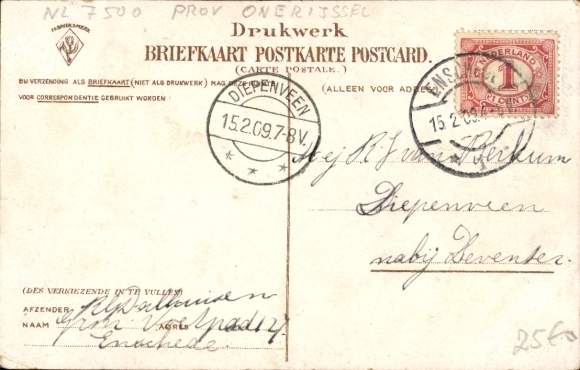 NL 7500 PROV OVERIJSSEL
FABRIEKSMERK
Drukwerk
BRIEFKAART POSTKARTE POSTCARD.
(CARTE POSTALE.)
BIJ VERZENDING ALS BRIEFKAART (NIET ALS DRUKWERK) MAG DEZE
VOOR CORRESPONDENTIE GEBRUIKT WORDEN
(ALLEEN VOOR ADRES)
NEDERLAND
1
CENT
ENSCHEDE
15.2.09
DIEPENVEEN
15.2.09.7-8V.
Mej R. J. van Berkum
Diepenveen
nabij Deventer.
(DES VERKIEZENDE IN TE VULLEN)
AFZENDER:
NAAM ADRES
Voetpad 27.
Enschede.
25€